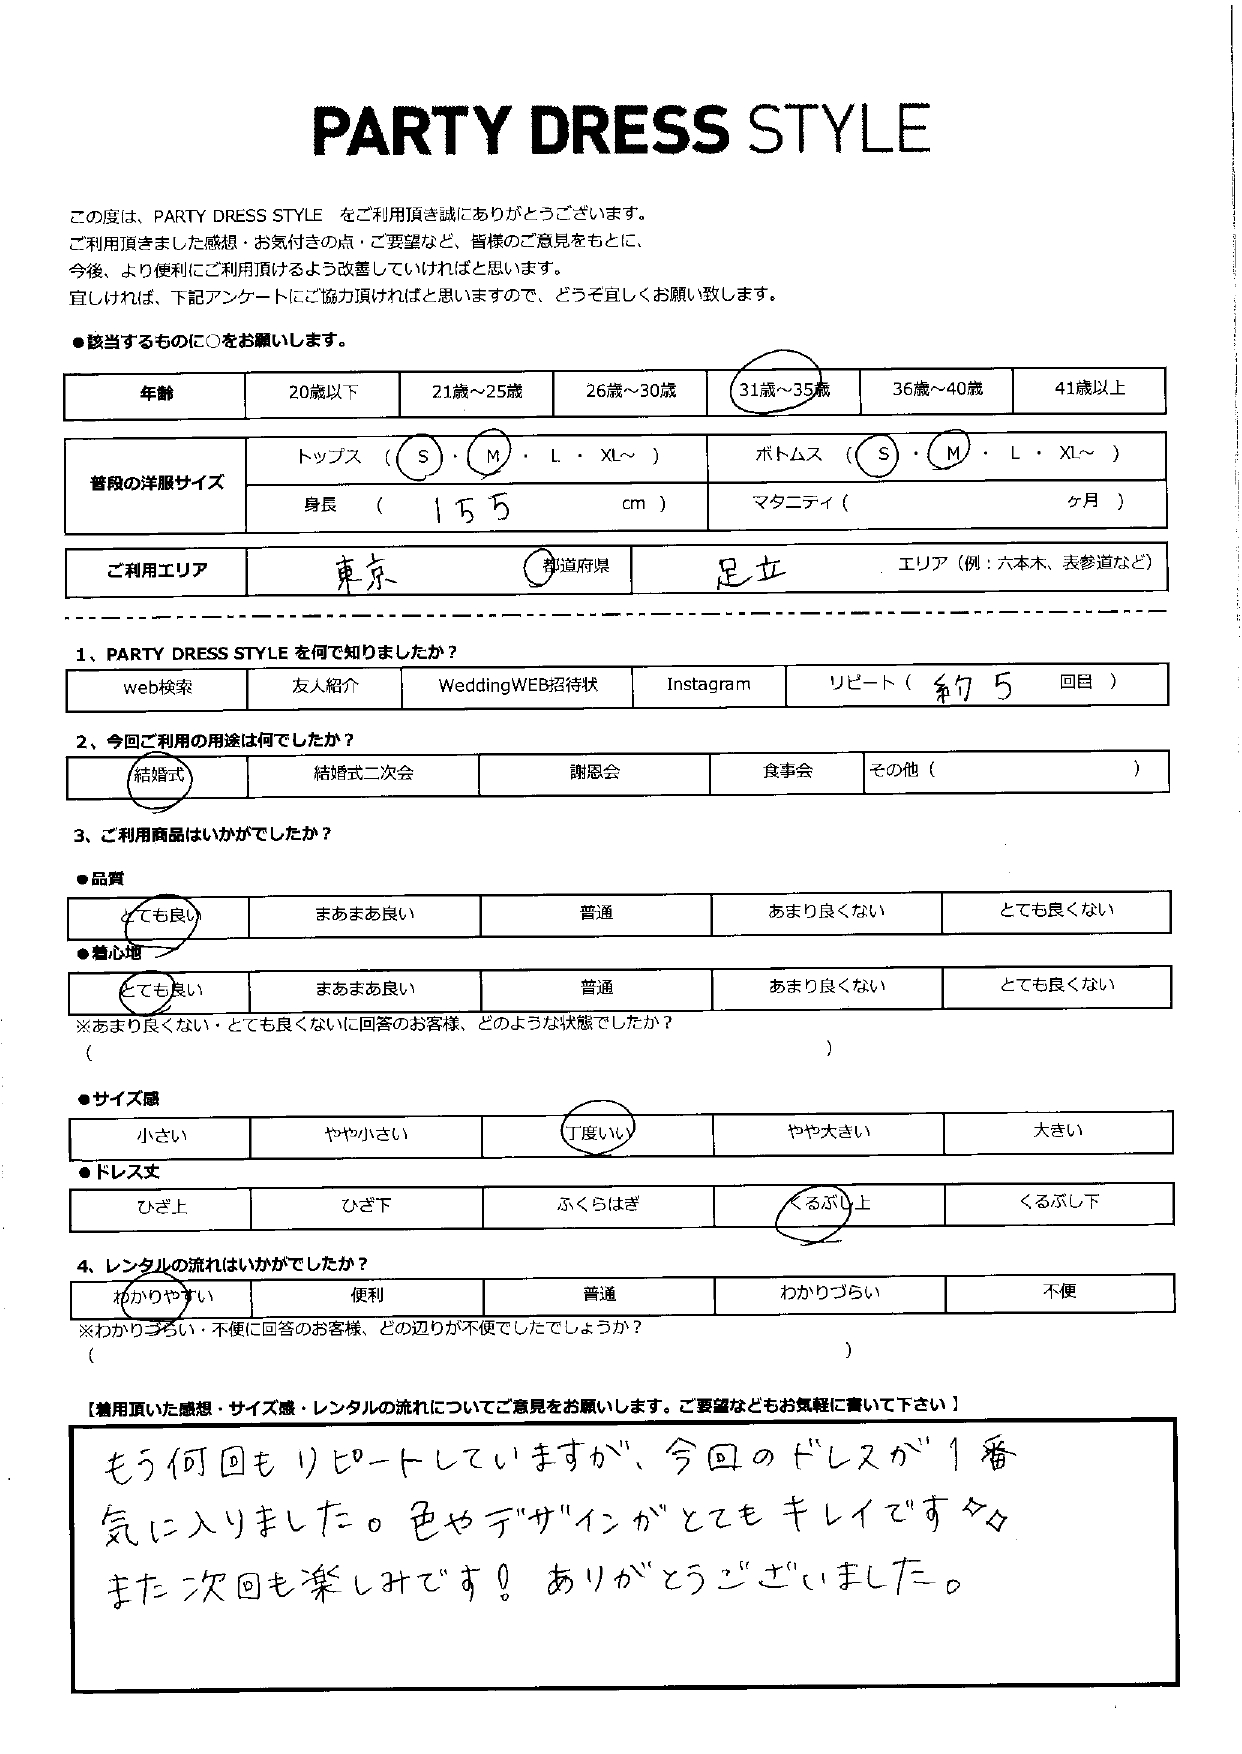 PARTY DRESS STYLE
この度は、PARTY DRESS STYLE をご利用頂き誠にありがとうございます。
ご利用頂きました感想・お気付きの点・ご要望など、皆様のご意見をもとに、
今後、より便利にご利用頂けるよう改善していければと思います。
宜しければ、下記アンケートにご協力頂ければと思いますので、どうぞ宜しくお願い致します。
●該当するものに○をお願いします。
年齢 20歳以下 21歳～25歳 26歳～30歳 31歳～35歳 36歳～40歳 41歳以上
普段の洋服サイズ
トップス （ S ・ M ・ L ・ XL～ ） ボトムス （ S ・ M ・ L ・ XL～ ）
身長 （ 155 cm ） マタニティ（ ヶ月 ）
ご利用エリア 東京 都道府県 足立 エリア（例：六本木、表参道など）
1、PARTY DRESS STYLE を何で知りましたか？
web検索 友人紹介 WeddingWEB招待状 Instagram リピート（ 約 5 回目 ）
2、今回ご利用の用途は何でしたか？
結婚式 結婚式二次会 謝恩会 食事会 その他（ ）
3、ご利用商品はいかがでしたか？
●品質
とても良い まあまあ良い 普通 あまり良くない とても良くない
●着心地
とても良い まあまあ良い 普通 あまり良くない とても良くない
※あまり良くない・とても良くないに回答のお客様、どのような状態でしたか？
（ ）
●サイズ感
小さい やや小さい 丁度いい やや大きい 大きい
●ドレス丈
ひざ上 ひざ下 ふくらはぎ くるぶし上 くるぶし下
4、レンタルの流れはいかがでしたか？
わかりやすい 便利 普通 わかりづらい 不便
※わかりづらい・不便に回答のお客様、どの辺りが不便でしたでしょうか？
（ ）
【着用頂いた感想・サイズ感・レンタルの流れについてご意見をお願いします。ご要望などもお気軽に書いて下さい】
もう何回もリピートしていますが、今回のドレスが1番
気に入りました。色やデザインがとてもキレイです✧✧
また次回も楽しみです! ありがとうございました。